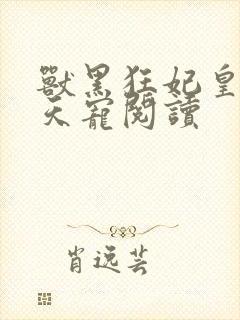 獸黑狂妃皇
天寵閱讀
肖逸芸